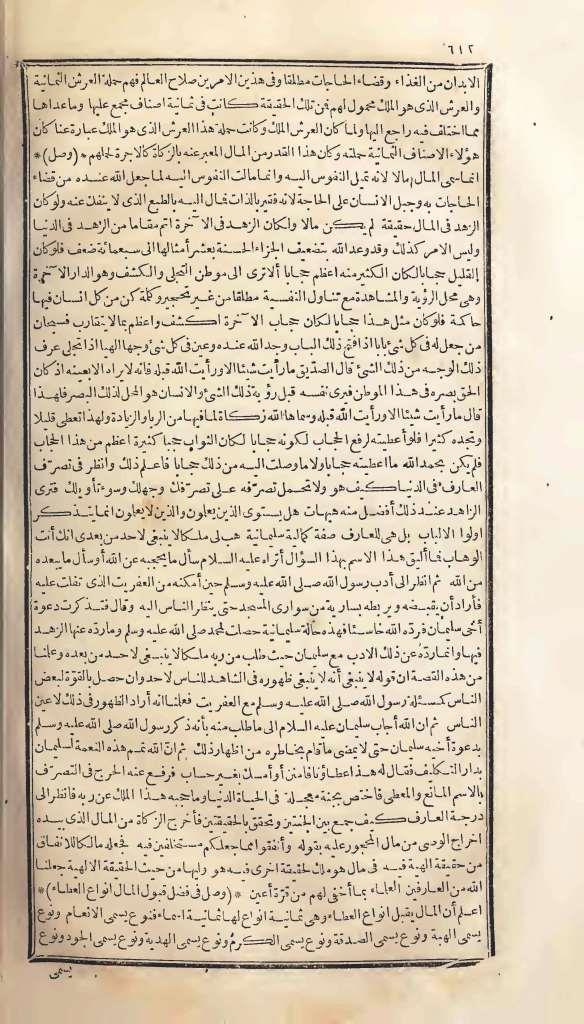 ٦١٢
الابدان من الغذاء وقضاء الحاجات مطلقا وفى هذين الامرين صلاح العالم فهم حملة العرش الثمانية
والعرش الذى هو الملك محمول لهم فمن تلك الحقيقة كانت فى ثمانية اصناف مجمع عليها وماعداها
مما اختلف فيه راجع اليها ولما كان العرش الملك وكانت حملة هذا العرش الذى هو الملك عبارة عنا كان
هؤلاء الاصناف الثمانية حملته وكان هذا القدر من المال المعبر عنه بالزكاة كالاجرة لحملهم * (وصل) *
انما سمى المال مالا لانه تميل النفوس اليه وانما مالت النفوس اليه لما جعل الله عنده من قضاء
الحاجات به وجبل الانسان على الحاجة لانه فقير بالذات فمال اليه بالطبع الذى لا ينفك عنه ولو كان
الزهد فى المال حقيقة لم يكن مالا ولكان الزهد فى الآخرة اتم مقاما من الزهد فى الدنيا
وليس الامر كذلك وقد وعد الله بتضعيف الجزاء الحسنة بعشر أمثالها الى سبعمائة ضعف فلو كان
القليل حجابا لكان الكثير منه اعظم حجابا ألا ترى الى موطن التجلى والكشف وهو الدار الآخرة
وهى محل الرؤية والمشاهدة مع تناول النفسية مطلقا من غير تحجير وكلمة كن من كل انسان فيها
حاكمة فلو كان مثل هذا حجابا لكان حجاب الآخرة اكشف واعظم بما لا يتقارب فسبحان
من جعل له فى كل شئ بابا اذا فتح ذلك الباب وجد الله عنده وعين فى كل شئ وجها الهيا اذا تجلى عرف
ذلك الوجه من ذلك الشئ قال الصديق ما رأيت شيئا الا ورأيت الله قبله فانه لا يراه الا بعينه اذ كان
الحق بصره فى هذا الموطن فيرى نفسه قبل رؤية ذلك الشئ والانسان هو المحل لذلك البصر فلهذا
قال ما رأيت شيئا الا ورأيت الله قبله وسماها الله زكاة لما فيها من الربا والزيادة ولهذا تعطى قليلا
وتجده كثيرا فلو أعطيته لرفع الحجاب لكونه حجابا لكان الثواب حجبا كثيرة اعظم من هذا الحجاب
فلم يكن بحمد الله ما اعطيته حجابا ولا ما وصلت اليه من ذلك حجابا فاعلم ذلك وانظر فى تصرف
العارف فى الدنيا كيف هو ولا تحمل تصرفه على تصرفك وجهلك وسوء تأويلك فترى
الزاهد عند ذلك أفضل منه هيهات هل يستوى الذين يعلمون والذين لا يعلمون انما يتذكر
اولوا الالباب بل هى للعارف صفة كمالية سليمانية هب لى ملكا لا ينبغى لاحد من بعدى انك أنت
الوهاب فما أليق هذا الاسم بهذا السؤال أتراه عليه السلام سأل ما يحجبه عن الله أو سأل ما يبعده
من الله ثم انظر الى أدب رسول الله صلى الله عليه وسلم حين أمكنه من العفريت الذى تفلت عليه
فأراد أن يقبضه ويربطه بسارية من سوارى المسجد حتى ينظر الناس اليه وقال فتذكرت دعوة
أخى سليمان فرده الله خاسئا فهذه حالة سليمانية حصلت لمحمد صلى الله عليه وسلم وما رده عنها الزهد
فيها وانما رده عن ذلك الادب مع سليمان حيث طلب من ربه ملكا لا ينبغى لاحد من بعده وعلمنا
من هذه القصة ان قوله لا ينبغى أنه لا ينبغى ظهوره فى الشاهد للناس لاحد وان حصل بالقوة لبعض
الناس كمسئلة رسول الله صلى الله عليه وسلم مع العفريت فعلمنا انه أراد الظهور فى ذلك لاعين
الناس ثم ان الله أجاب سليمان عليه السلام الى ما طلب منه بأنه ذكر رسول الله صلى الله عليه وسلم
بدعوة أخيه سليمان حتى لا يمضى ما قام بخاطره من اظهار ذلك ثم ان الله تمم هذه النعمة لسليمان
بدار التكليف فقال له هذا عطاؤنا فامنن أو أمسك بغير حساب فرفع عنه الحرج فى التصرف
بالاسم المانع والمعطى فاختص بجنة معجلة فى الحياة الدنيا وما حجبه هذا الملك عن ربه فانظر الى
درجة العارف كيف جمع بين الجنتين وتحقق بالحقيقتين فأخرج الزكاة من المال الذى بيده
اخراج الوصى من مال المحجور عليه بقوله وأنفقوا مما جعلكم مستخلفين فيه فجعله مالكا للانفاق
من حقيقة الهية فيه فى مال هو ملك لحقيقة اخرى فيه هو وليها من حيث الحقيقة الالهية جعلنا
الله من العارفين العلماء بما أخفى لهم من قرة أعين * (وصل فى فضل قبول المال انواع العطاء) *
اعلم أن المال يقبل انواع العطاء وهى ثمانية انواع لها ثمانية اسماء فنوع يسمى الانعام ونوع
يسمى الهبة ونوع يسمى الصدقة ونوع يسمى الكرم ونوع يسمى الهدية ونوع يسمى الجود ونوع
يسمى